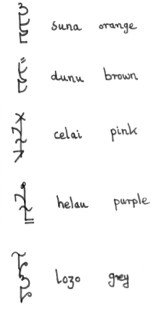 suna orange
dunu brown
celai pink
helau purple
lozo grey